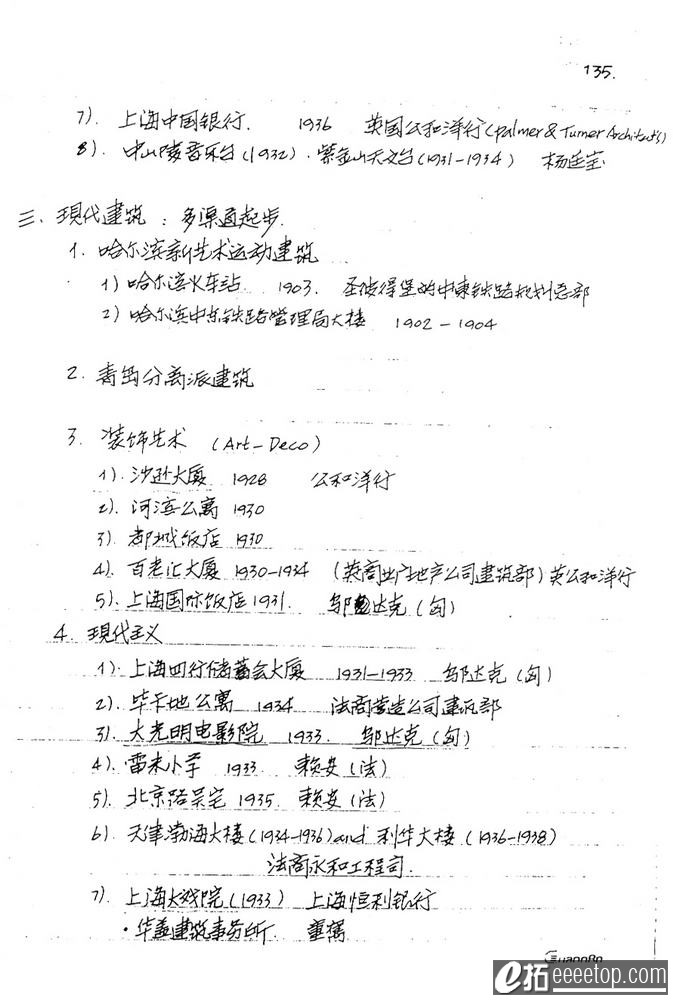 135.
7). 上海中国银行. 1936 英国公和洋行(Palmer & Turner Architects)
8). 中山陵音乐台(1932). 紫金山天文台(1931-1934) 杨廷宝
三、现代建筑：多渠道起步.
1. 哈尔滨新艺术运动建筑
1) 哈尔滨火车站 1903. 圣彼得堡的中东铁路规划总部
2) 哈尔滨中东铁路管理局大楼 1902-1904
2. 青岛分离派建筑
3. 装饰艺术 (Art-Deco)
1). 沙逊大厦 1928 公和洋行
2). 河滨公寓 1930
3) 都城饭店 1930
4). 百老汇大厦 1930-1934 (英商业广地产公司建筑部) 英公和洋行
5). 上海国际饭店 1931. 邬达克(匈)
4. 现代主义
1). 上海四行储蓄会大厦 1931-1933 邬达克(匈)
2). 毕卡地公寓 1934 法商营造公司建筑部
3). 大光明电影院 1933. 邬达克(匈)
4). 雷米小学 1933 赖安(法)
5). 北京路吴宅 1935. 赖安(法)
6). 天津渤海大楼(1934-1936) and 利华大楼 (1936-1938)
法商永和工程司.
7). 上海大戏院(1933) 上海恒利银行
·华盖建筑事务所. 童寯
GuangBo
e拓 eeeetop.com